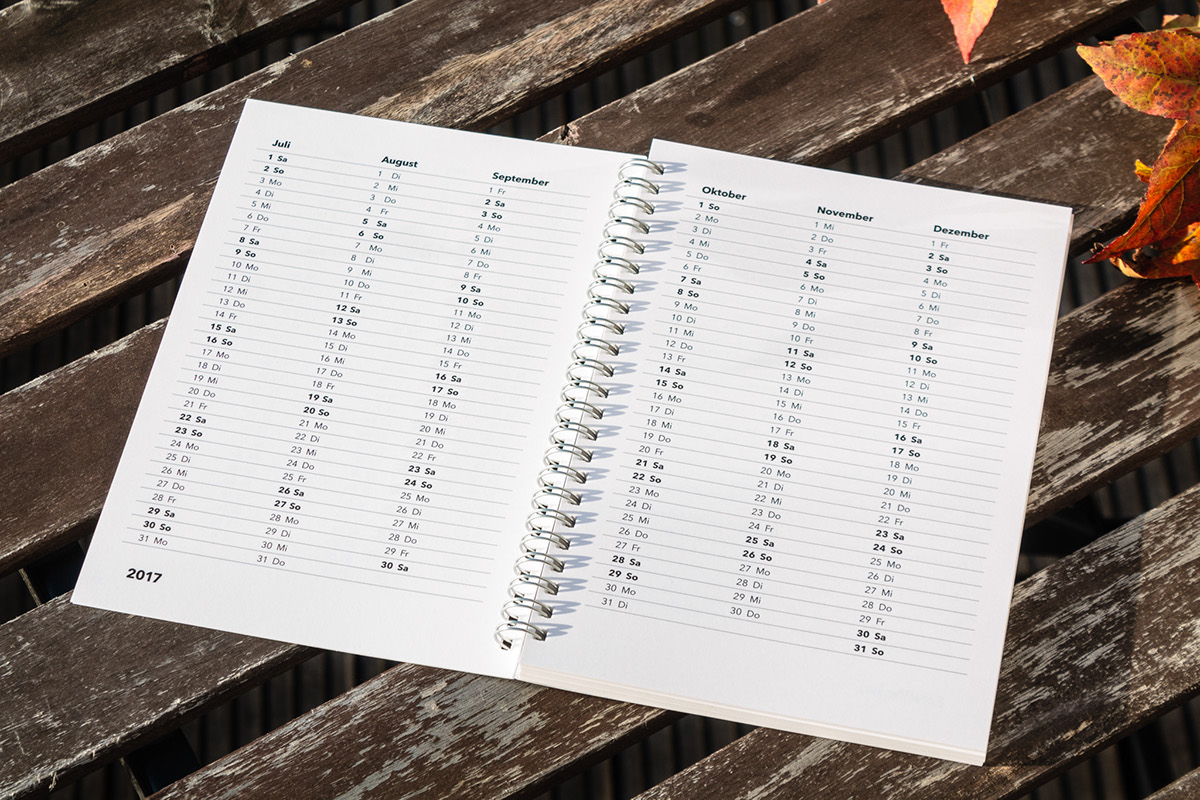 Juli
1 Sa
2 So
3 Mo
4 Di
5 Mi
6 Do
7 Fr
8 Sa
9 So
10 Mo
11 Di
12 Mi
13 Do
14 Fr
15 Sa
16 So
17 Mo
18 Di
19 Mi
20 Do
21 Fr
22 Sa
23 So
24 Mo
25 Di
26 Mi
27 Do
28 Fr
29 Sa
30 So
31 Mo
August
1 Di
2 Mi
3 Do
4 Fr
5 Sa
6 So
7 Mo
8 Di
9 Mi
10 Do
11 Fr
12 Sa
13 So
14 Mo
15 Di
16 Mi
17 Do
18 Fr
19 Sa
20 So
21 Mo
22 Di
23 Mi
24 Do
25 Fr
26 Sa
27 So
28 Mo
29 Di
30 Mi
31 Do
September
1 Fr
2 Sa
3 So
4 Mo
5 Di
6 Mi
7 Do
8 Fr
9 Sa
10 So
11 Mo
12 Di
13 Mi
14 Do
15 Fr
16 Sa
17 So
18 Mo
19 Di
20 Mi
21 Do
22 Fr
23 Sa
24 So
25 Mo
26 Di
27 Mi
28 Do
29 Fr
30 Sa
2017
Oktober
1 So
2 Mo
3 Di
4 Mi
5 Do
6 Fr
7 Sa
8 So
9 Mo
10 Di
11 Mi
12 Do
13 Fr
14 Sa
15 So
16 Mo
17 Di
18 Mi
19 Do
20 Fr
21 Sa
22 So
23 Mo
24 Di
25 Mi
26 Do
27 Fr
28 Sa
29 So
30 Mo
31 Di
November
1 Mi
2 Do
3 Fr
4 Sa
5 So
6 Mo
7 Di
8 Mi
9 Do
10 Fr
11 Sa
12 So
13 Mo
14 Di
15 Mi
16 Do
17 Fr
18 Sa
19 So
20 Mo
21 Di
22 Mi
23 Do
24 Fr
25 Sa
26 So
27 Mo
28 Di
29 Mi
30 Do
Dezember
1 Fr
2 Sa
3 So
4 Mo
5 Di
6 Mi
7 Do
8 Fr
9 Sa
10 So
11 Mo
12 Di
13 Mi
14 Do
15 Fr
16 Sa
17 So
18 Mo
19 Di
20 Mi
21 Do
22 Fr
23 Sa
24 So
25 Mo
26 Di
27 Mi
28 Do
29 Fr
30 Sa
31 So